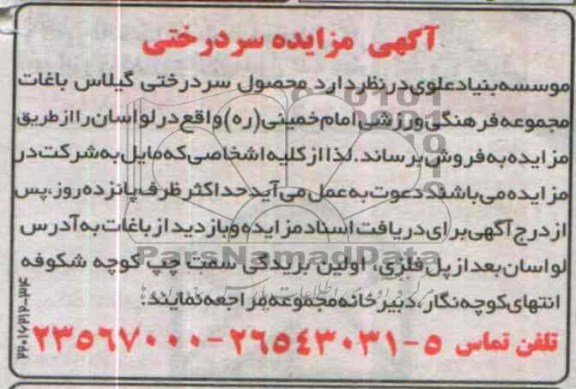 آگهی مزایده سردرختی
موسسه بنیاد علوی در نظر دارد محصول سردرختی گیلاس باغات
مجموعه فرهنگی ورزشی امام خمینی (ره) واقع در لواسان را از طریق
مزایده به فروش برساند. لذا از کلیه اشخاصی که مایل به شرکت در
مزایده می باشند دعوت به عمل می آید حداکثر ظرف پانزده روز، پس
از درج آگهی برای دریافت اسناد مزایده و بازدید از باغات به آدرس
لواسان بعد از پل فلزی، اولین بریدگی سمت چپ کوچه شکوفه
انتهای کوچه نگار، دبیرخانه مجموعه مراجعه نمایند:
تلفن تماس ۵-۲۶۵۴۳۰۳۱-۲۳۵۶۷۰۰۰
ParsNamadData